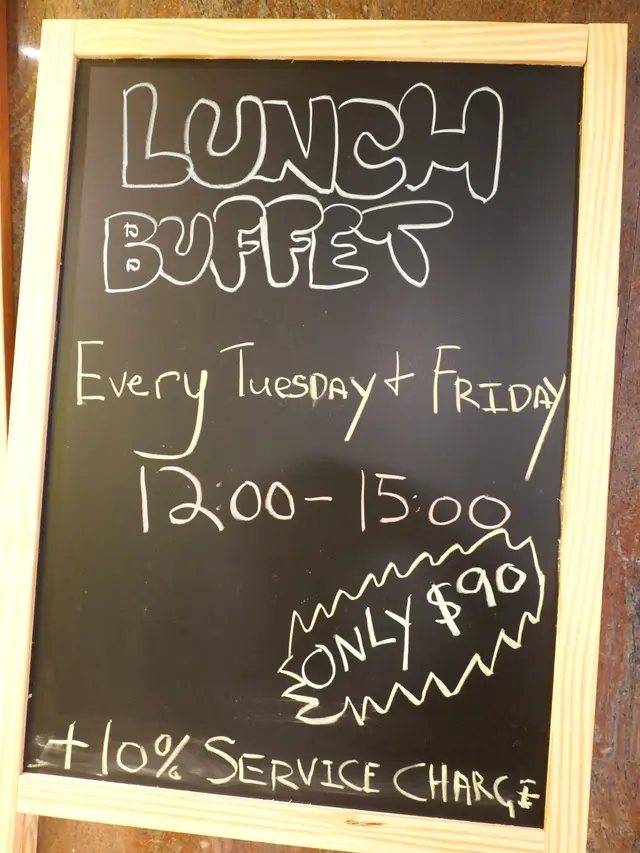 LUNCH
BUFFET
Every Tuesday + FRIDAY
12:00 - 15:00
ONLY $90
+10% SERVICE CHARGE